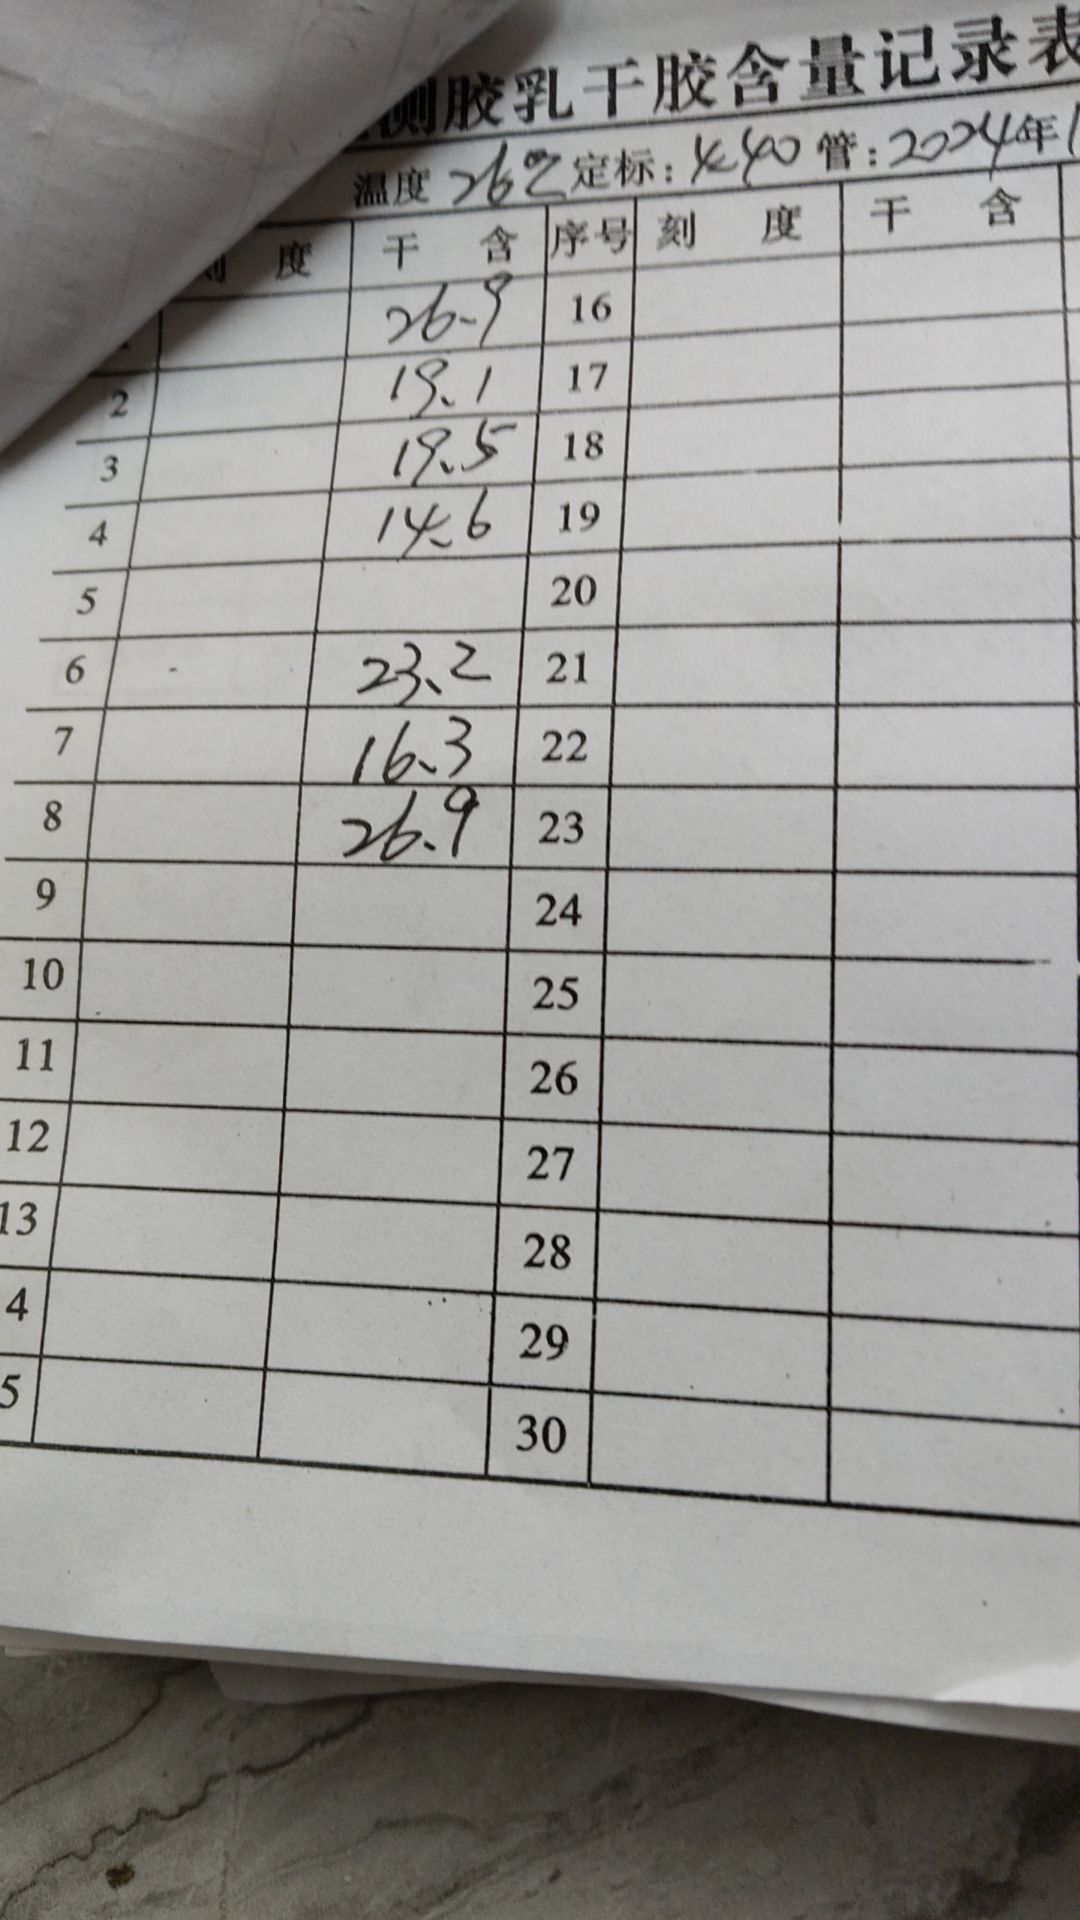 测胶乳干胶含量记录表
温度 26℃ 定标: 4.40 管: 2024年1
度 干 含 序号 刻 度 干 含
26.9 16
2 19.1 17
3 19.5 18
4 14.6 19
5 20
6 23.2 21
7 16.3 22
8 26.9 23
9 24
10 25
11 26
12 27
13 28
4 29
5 30